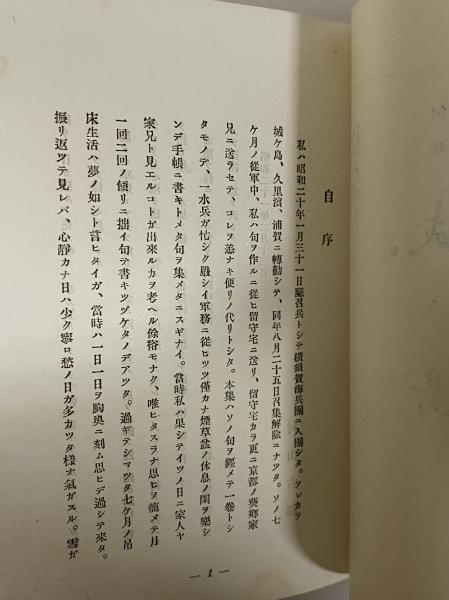 自序
私ハ昭和二十年一月三十一日應召兵トシテ橫須賀海兵團ニ入團シタ。ソレカラ
城ケ島、久里濱、浦賀ニ轉勤シテ、同年八月二十五日召集解除ニナツタ。ソノ七
ケ月ノ從軍中、私ハ句ヲ作ルニ從ヒ留守宅ニ送リ、留守宅カラ更ニ京都ノ葵鄕家
兄ニ送ラセテ、コレヲ恙ナキ便リノ代リトシタ。本集ハソノ句ヲ經メテ一卷トシ
タモノデ、一水兵ガ忙シク嚴シイ軍務ニ從ヒツツ僅カナ煙草盆ノ休息ノ閑ヲ樂シ
ンデ手帳ニ書キトメタ句ヲ集メタニスギナイ。當時私ハ果シテイツノ日ニ家人ヤ
家兄ト見エルコトガ出來ルカヲ考ヘル餘裕モナク、唯ヒタスラナ思ヒヲ籠メテ月
一回二回ノ便リニ拙イ句ヲ書キツヅケタノデアツタ。過ギテシマツタ七ケ月ノ吊
床生活ハ夢ノ如シト言ヒタイガ、當時ハ一日一日ヲ胸奧ニ刻ム思ヒデ過シテ來タ。
振リ返ツテ見レバ、心靜カナ日ハ少ク寧ロ愁ノ日ガ多カツタ樣ナ氣ガスル。雪ガ
— 1 —